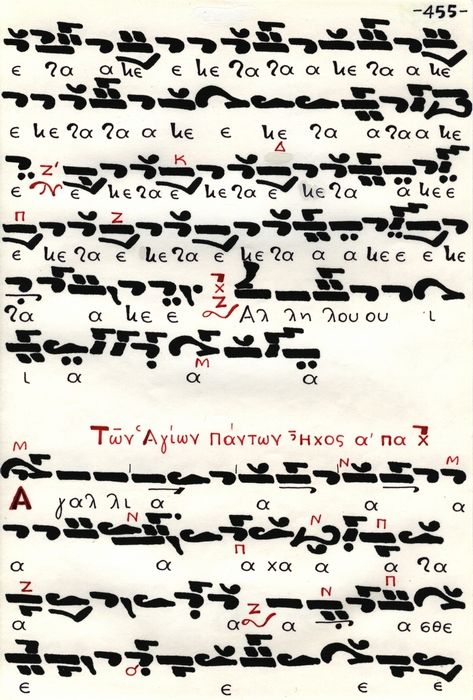 -455-
ε γα α κε ε κε γα γα α κε γα γα α κε
ε κε γα γα α κε ε κε γα α γα α κε
Ζ' Κ Δ
ε ε κε γα ε κε γα ε κε γα α κε ε
Π Ζ
ε κε γα ε κε γα ε κε γα α α κε ε ε κε
γα α κε ε Ζ Αλ λη λου ου ι
Μ
ι α α α
Τῶν Ἁγίων Πάντων Ἦχος α' πα
Μ Ν Μ
Α γαλ λι α α α α
Ν Π Ν Π
α α α χα α α γα
Ζ Ζ Ν Π
α α α α σθε
ε ε ε ε